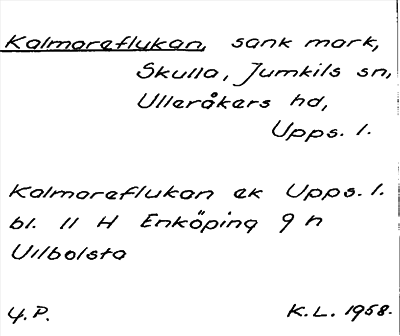 Kalmareflukan, sank mark,
Skulla, Jumkils sn,
Ulleråkers hd,
Upps. l.
Kalmareflukan ek Upps. l.
bl. 11 H Enköping 9 n
Uilbolsta
Y.P. K.L. 1958.